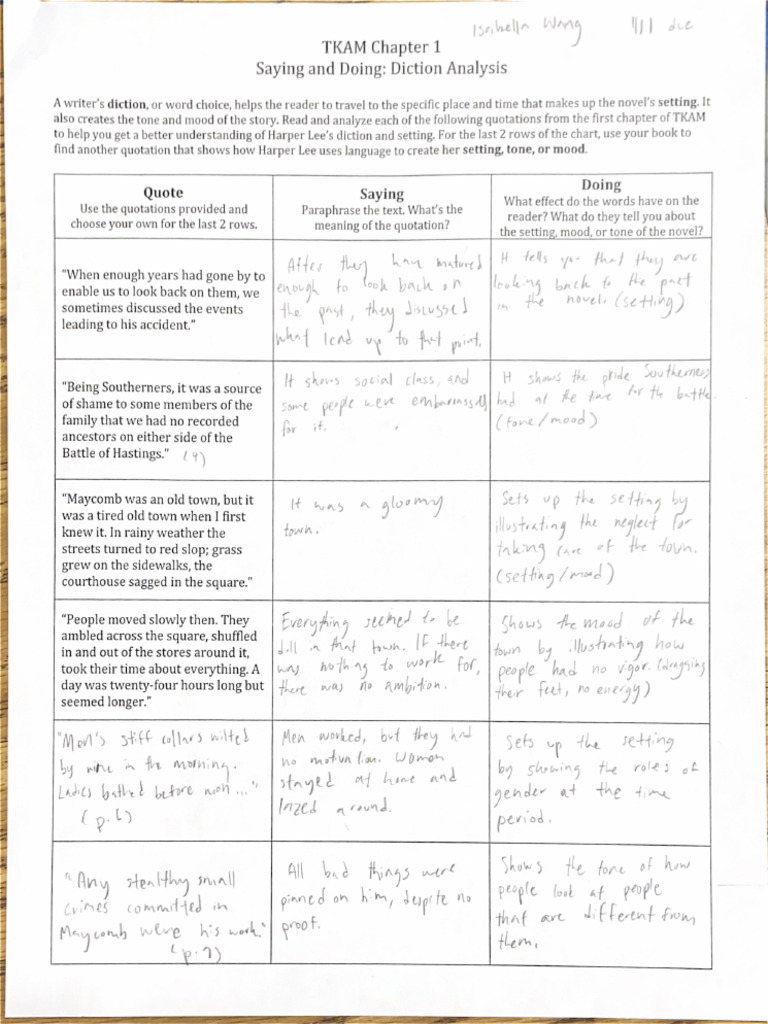 Isabella Wang 1/11 due
TKAM Chapter 1
Saying and Doing: Diction Analysis
A writer's diction, or word choice, helps the reader to travel to the specific place and time that makes up the novel's setting. It
also creates the tone and mood of the story. Read and analyze each of the following quotations from the first chapter of TKAM
to help you get a better understanding of Harper Lee's diction and setting. For the last 2 rows of the chart, use your book to
find another quotation that shows how Harper Lee uses language to create her setting, tone, or mood.
Quote
Use the quotations provided and
choose your own for the last 2 rows.
Saying
Paraphrase the text. What's the
meaning of the quotation?
Doing
What effect do the words have on the
reader? What do they tell you about
the setting, mood, or tone of the novel?
"When enough years had gone by to
enable us to look back on them, we
sometimes discussed the events
leading to his accident."
After they have matured
enough to look back on
the past, they discussed
what lead up to that point.
It tells you that they are
looking back to the past
in the novel. (setting)
"Being Southerners, it was a source
of shame to some members of the
family that we had no recorded
ancestors on either side of the
Battle of Hastings." (4)
It shows social class, and
some people were embarrassed
for it.
It shows the pride Southerners
had at the time for the battle.
(tone/mood)
"Maycomb was an old town, but it
was a tired old town when I first
knew it. In rainy weather the
streets turned to red slop; grass
grew on the sidewalks, the
courthouse sagged in the square."
It was a gloomy
town.
Sets up the setting by
illustrating the neglect for
taking care of the town.
(setting/mood)
"People moved slowly then. They
ambled across the square, shuffled
in and out of the stores around it,
took their time about everything. A
day was twenty-four hours long but
seemed longer."
Everything seemed to be
dull in that town. If there
was nothing to work for,
there was no ambition.
Shows the mood of the
town by illustrating how
people had no vigor. (dragging
their feet, no energy)
"Men's stiff collars wilted
by nine in the morning.
Ladies bathed before noon..."
(p.6)
Men worked, but they had
no motivation. Women
stayed at home and
lazed around.
Sets up the setting
by showing the roles of
gender at the time
period.
"Any stealthy small
crimes committed in
Maycomb were his work."
(p.9)
All bad things were
pinned on him, despite no
proof.
Shows the tone of how
people look at people
that are different from
them.